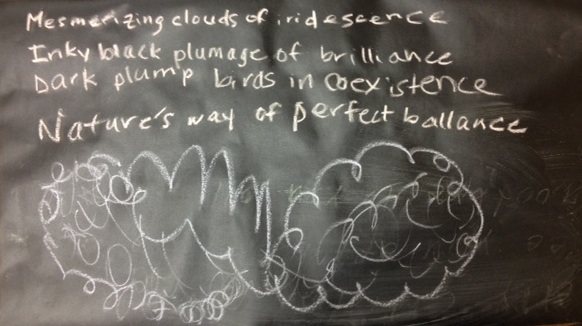 Mesmerizing clouds of iridescence
Inky black plumage of brilliance
Dark plump birds in coexistence
Nature's way of perfect ballance